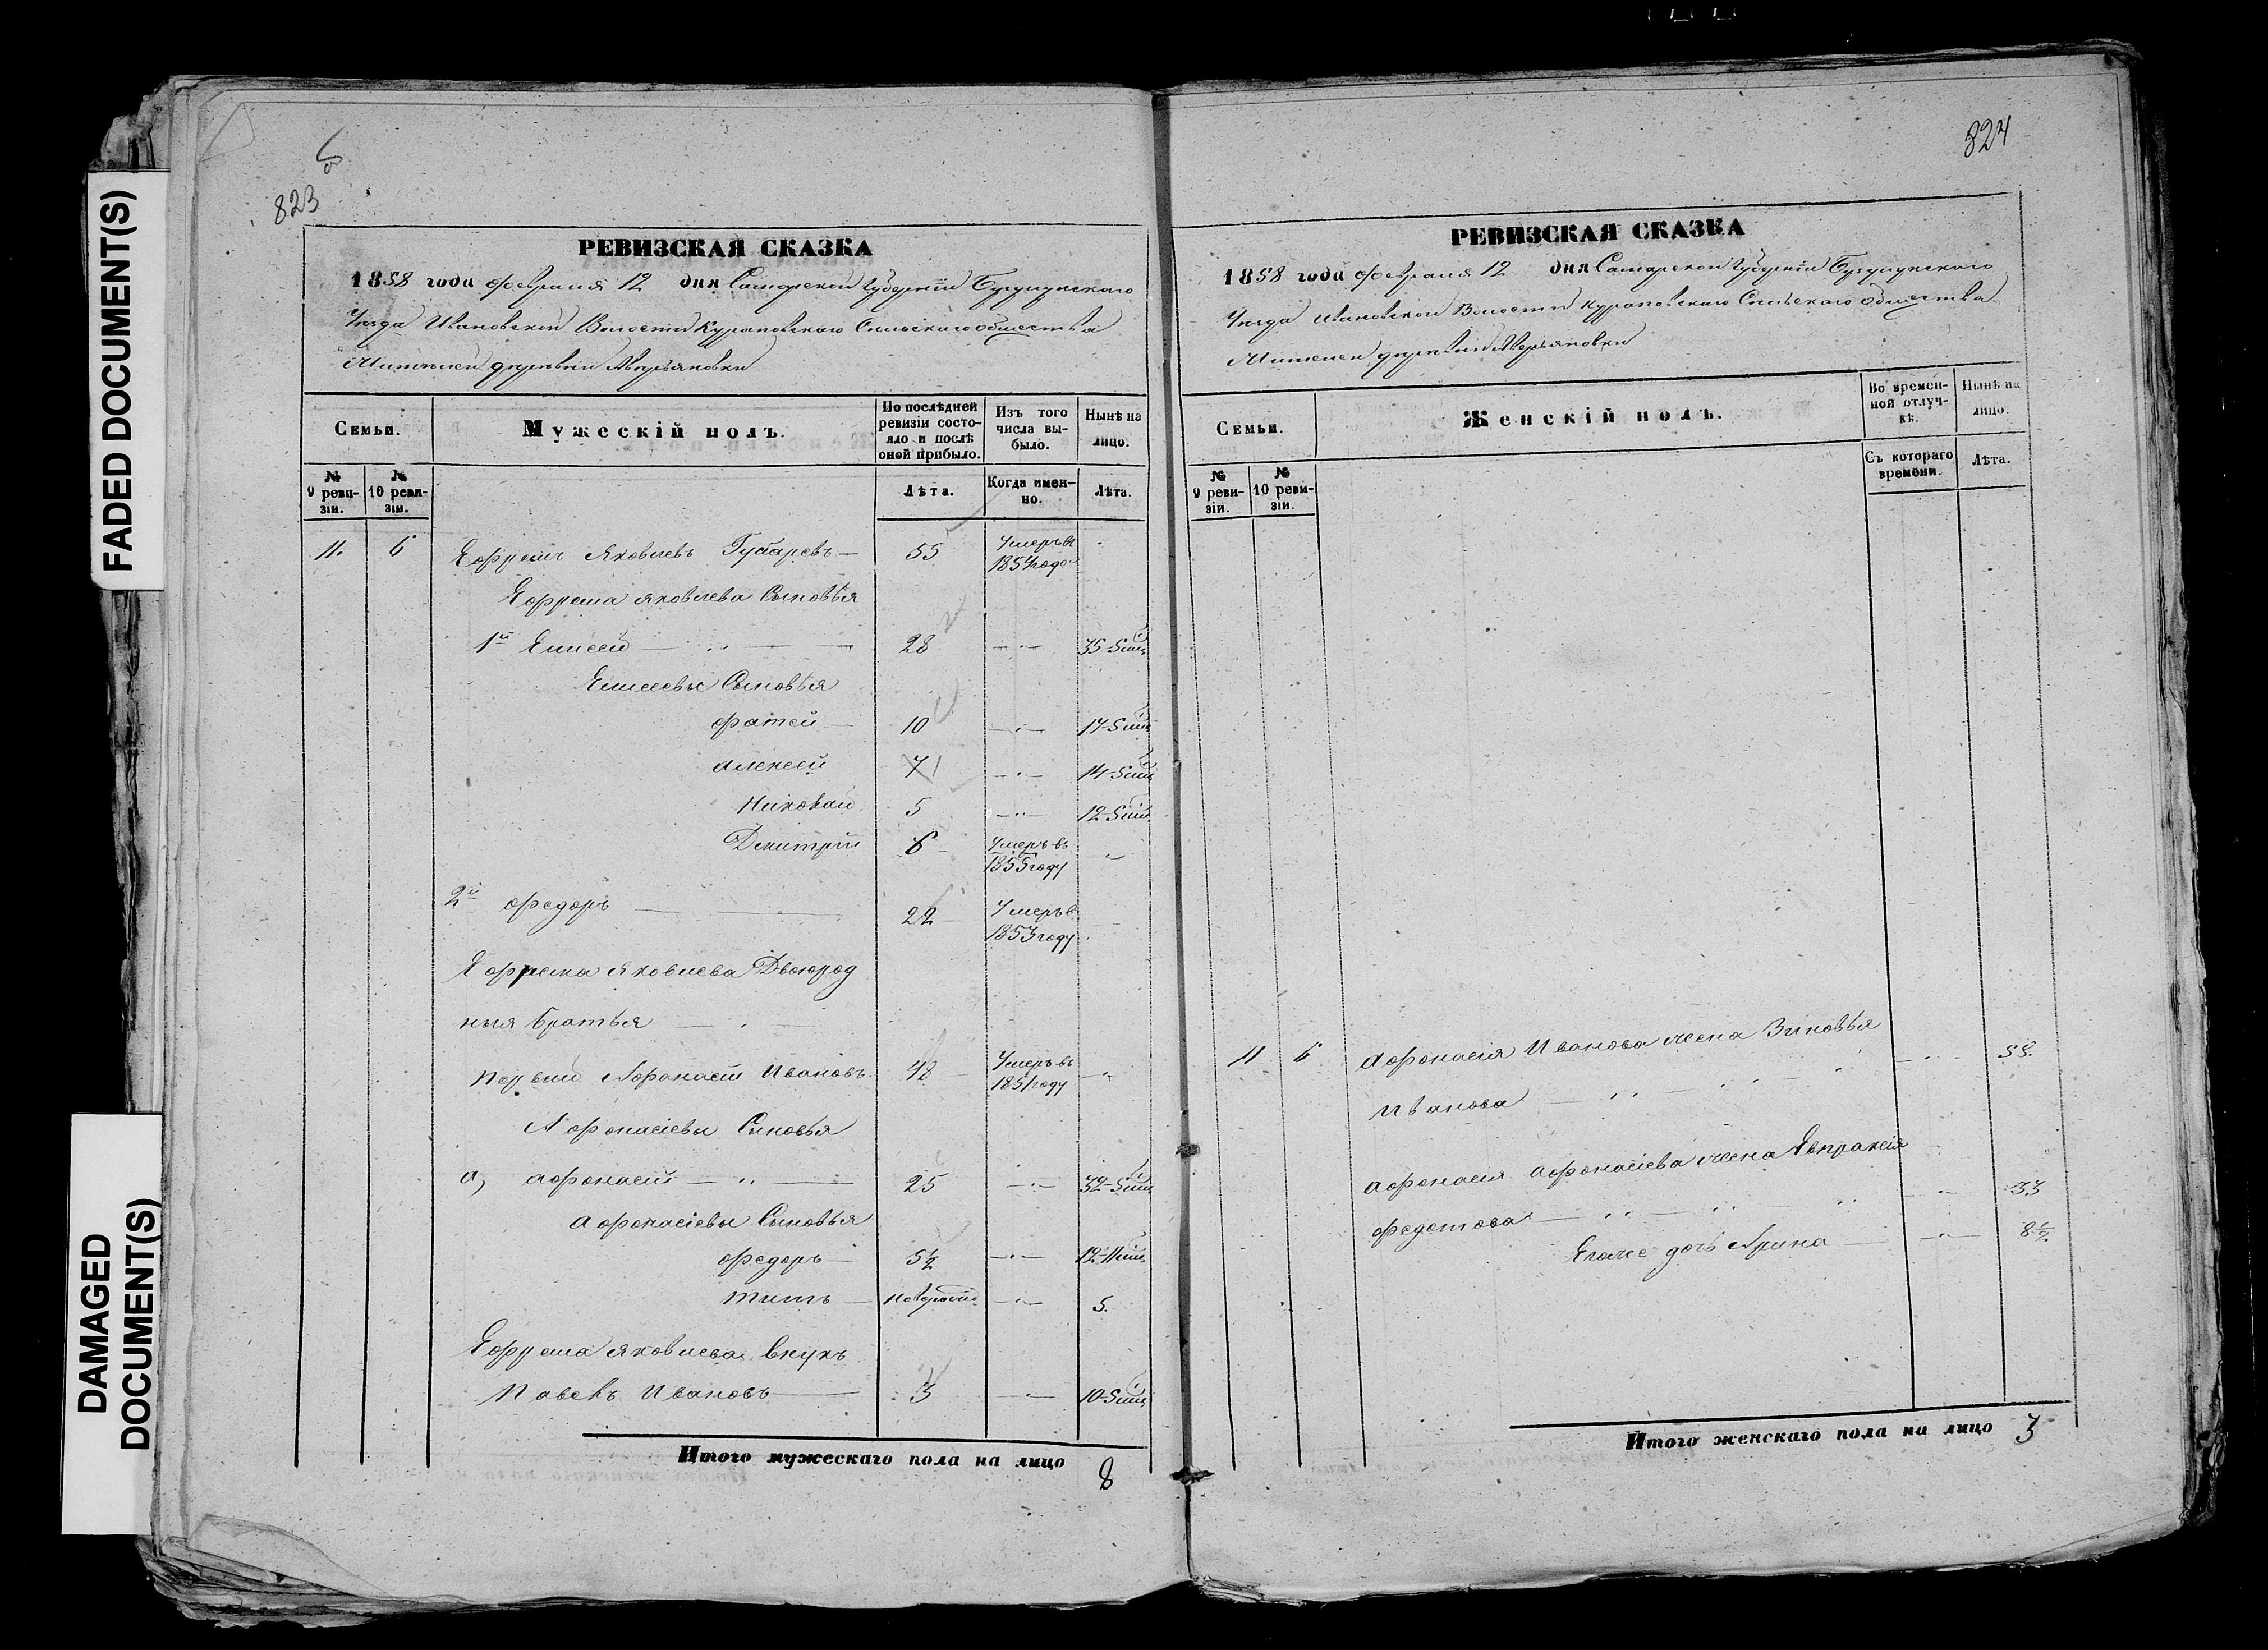 FADED DOCUMENT(S)
DAMAGED
DOCUMENT(S)
823
РЕВИЗСКАЯ СКАЗКА
1858 года февраля 12 дня Самарской Губернiи Бузулукскаго
Уезда Ивановской Волости Курановскаго Сельскаго общества
деревни Аверьяновки
Семьи.
Мужескiй полъ.
По послѣдней ревизiи состояло и послѣ оной прибыло.
Изъ того числа выбыло.
Нынѣ на лицо.
№ 9 ревизiи.
№ 10 ревизiи.
Лѣта.
Когда именно.
Лѣта.
11. 6 Ефремъ Яковлевъ Губаревъ — 55 Умеръ въ 1854 годо
Ефрема Яковлева Сыновья
1й Елисей — 28 — 35-5
Елисеевы Сыновья
Фатей — 10 — 17-5
Алексей 7 — 14-5
Николай 5 — 12-5
Дмитрiй 6 Умеръ въ 1855 году
2й Федоръ — 22 Умеръ в 1853 году
Ефрема Яковлева Двоюрод
ныя братья —
Первый Афонасiй Ивановъ 48 Умеръ въ 1851 году
Афонасiевы Сыновья
а, Афонасiй — 25 — 32-5
Афонасiевы Сыновья
Федоръ — 5½ — 12-11
Титъ — — 5.
Ефрема Яковлева внукъ
Павелъ Ивановъ — 3 — 10-5
Итого мужескаго пола на лицо 8
824
РЕВИЗСКАЯ СКАЗКА
1858 года февраля 12 дня Самарской Губернiи Бузулукскаго
Уезда Ивановской Волости Курановскаго Сельскаго общества
деревни Аверьяновки
Семьи.
Женскiй полъ.
Во временной отлучкѣ.
Нынѣ на лицо.
№ 9 ревизiи.
№ 10 ревизiи.
Съ котораго времени.
Лѣта.
11 6 Афонасiя Иванова жена Зиновья
Иванова — 55.
Афонасiя Афонасiева жена Евпраксiя
Федотова — 33
Еяже дочь Арина — 8½
Итого женскаго пола на лицо 3